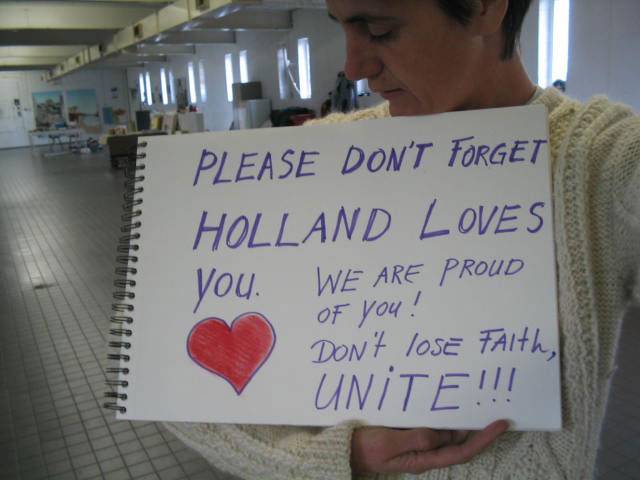 PLEASE DON'T FORGET
HOLLAND LOVES
YOU.
WE ARE PROUD
OF YOU!
DON'T LOSE FAITH,
UNITE!!!